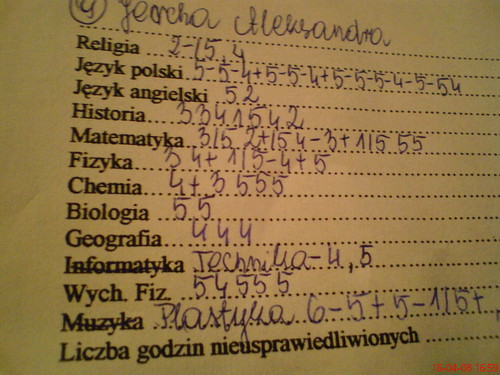 Jercha Aleksandra
Religia 2-15, 4
Język polski 5-5-4+5-5-4+5-5-5-4-5-54
Język angielski 5 2
Historia 3 3 4 1 5 4 2
Matematyka 3/5 2+/54-3+1/5 55
Fizyka 3 4+ 1/5-4+5
Chemia 4+ 3 555
Biologia 5 5
Geografia 4 4 4
Informatyka Technika-4, 5
Wych. Fiz. 54555
Muzyka Plastyka 6-5+5-1/5+
Liczba godzin nieusprawiedliwionych